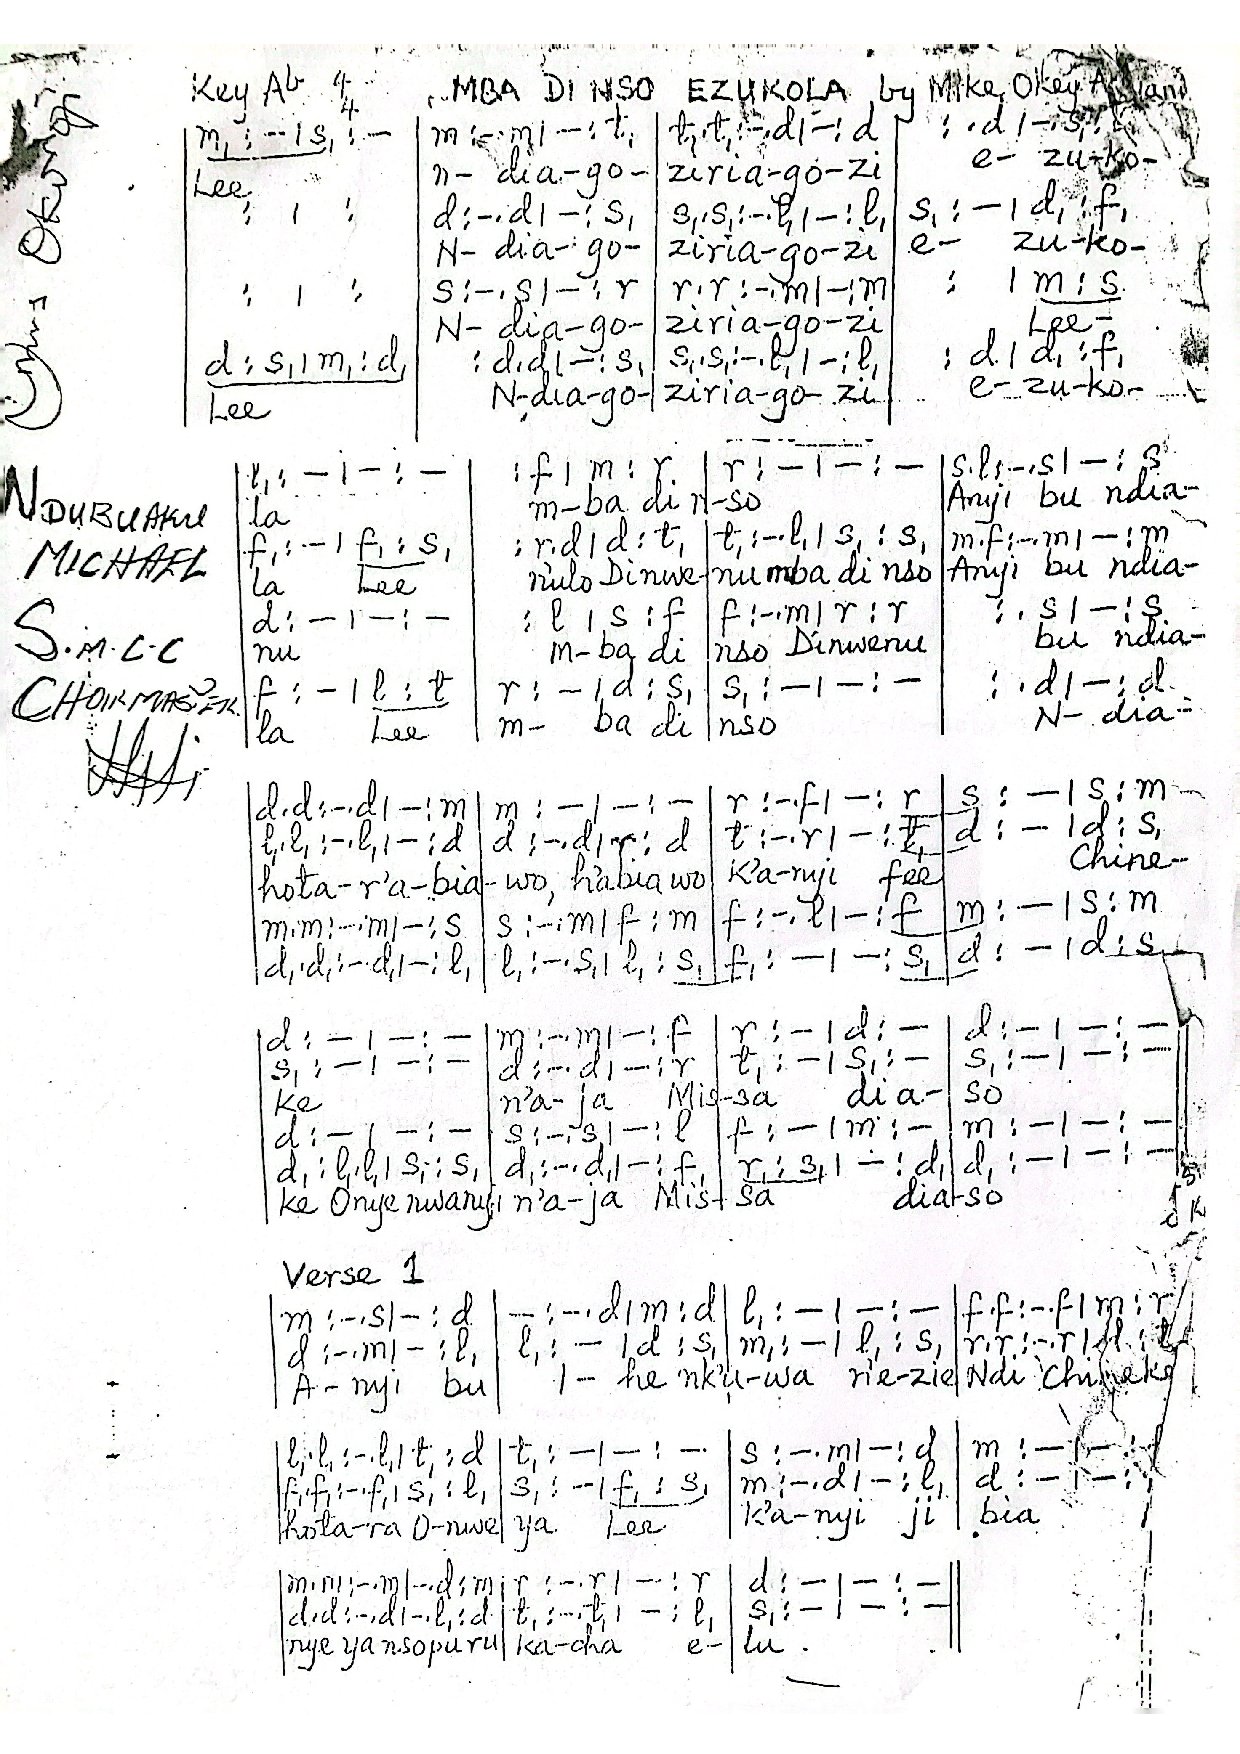 Key Ab 4/4 MBA DI NSO EZUKOLA by Mike Okey
m, : – | s, : – | m : – . m | – : t, | t, . t, : – . d | – : d | : . d | – . s, : l,
Lee n- dia-go- ziria-go-zi e- zu-ko-
: | : | d : – . d | – : s, | s, . s, : – . l, | – : l, | s, : – | d, : f,
N- dia-go- ziria-go-zi e- zu-ko-
: | : | s : – . s | – : r | r . r : – . m | – : m | : | m : s
N- dia-go- ziria-go-zi Lee-
d : s, | m, : d, | : d . d | – : s, | s, . s, : – . l, | – : l, | : d | d, : f,
Lee N-dia-go- ziria-go-zi e- zu-ko-
NDUBUAKU
MICHAEL
S.M.C.C
CHOIRMASTER
l, : – | – : – | : f | m : r | r : – | – : – | s . l : – . s | – : s
la m-ba di n-so Anyi bu ndia-
f, : – | f, : s, | : r . d | d : t, | t, : – . l, | s, : s, | m . f : – . m | – : m
la Lee nulo Dinwe-nu mba di nso Anyi bu ndia-
d : – | – : – | : l | s : f | f : – . m | r : r | : . s | – : s
nu m-ba di nso Dinwenu bu ndia-
f : – | l : t | r : – | d : s, | s, : – | – : – | : . d | – : d
la Lee m- ba di nso N- dia-
d . d : – . d | – : m | m : – | – : – | r : – . f | – : r | s : – | s : m
l, . l, : – . l, | – : d | d : – . d | r : d | t : – . r | – : t, | d : – | d : s,
hota-r'a-bia-wo, h'abiawo k'a-nyi fee Chine-
m . m : – . m | – : s | s : – . m | f : m | f : – . l | – : f | m : – | s : m
d, . d, : – . d, | – : l, | l, : – . s, | l, : s, | f, : – | – : s, | d : – | d : s,
d : – | – : – | m : – . m | – : f | r : – | d : – | d : – | – : –
s, : – | – : – | d : – . d | – : r | t, : – | s, : – | s, : – | – : –
ke n'a-ja Mis-sa dia-so
d : – | – : – | s : – . s | – : l | f : – | m : – | m : – | – : –
d, : l, . l, | s, : s, | d, : – . d, | – : f, | r, : s, | – : d, | d, : – | – : –
ke Onye nwanyi n'a-ja Mis-sa dia-so
Verse 1
m : – . s | – : d | – : – . d | m : d | l, : – | – : – | f . f : – . f | m : r
d : – . m | – : l, | l, : – | d : s, | m, : – | l, : s, | r . r : – . r |
A-nyi bu I-he nk'u-wa rie-zie Ndi Chineke
l, . l, : – . l, | t, : d | t, : – | – : – | s : – . m | – : d | m : – | – :
f, . f, : – . f, | s, : l, | s, : – | f, : s, | m : – . d | – : l, | d : – | – :
hota-ra O-nwe ya Lee k'a-nyi ji bia
m . m : – . m | – . d : m | r : – . r | – : r | d : – | – : –
d . d : – . d | – . l, : d | t, : – . t, | – : l, | s, : – | – : –
nye ya nsopuru ka-cha e- lu .